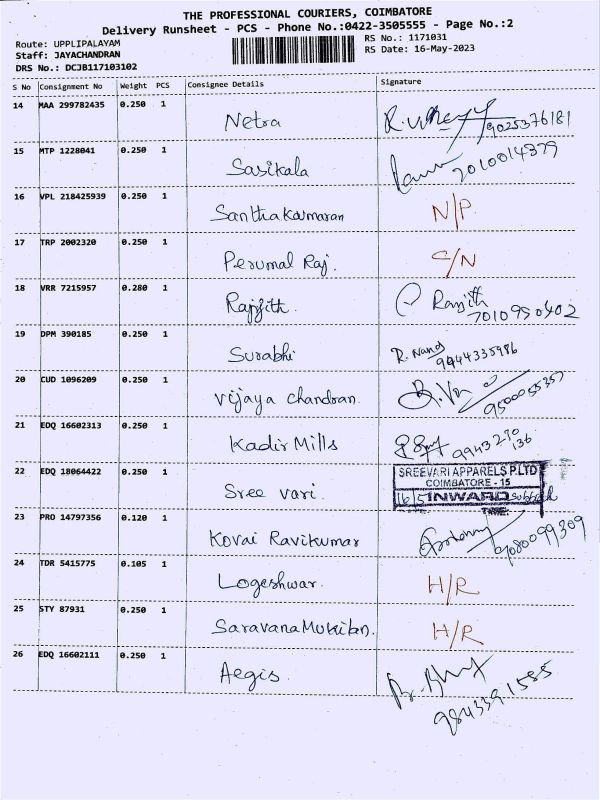 THE PROFESSIONAL COURIERS, COIMBATORE
Delivery Runsheet - PCS - Phone No.:0422-3505555 - Page No.:2
Route: UPPLIPALAYAM RS No.: 1171031
Staff: JAYACHANDRAN RS Date: 16-May-2023
DRS No.: DCJB117103102
S No Consignment No Weight PCS Consignee Details Signature
14 MAA 299782435 0.250 1 Netra 9025376181
15 MTP 1228041 0.250 1 Sasikala 7010014379
16 VPL 218425939 0.250 1 Santhakumaran N/P
17 TRP 2002320 0.250 1 Perumal Raj. C/N
18 VRR 7215957 0.280 1 Rajjith. Ranjith
7010950402
19 DPM 390185 0.250 1 Surabhi R. Nand
9444335986
20 CUD 1096209 0.250 1 Vijaya chandran. 9500055357
21 EDQ 16602313 0.250 1 Kadir Mills 9943270
136
22 EDQ 18064422 0.250 1 Sree vari. SREEVARI APPARELS P.LTD
COIMBATORE - 15
16/5 INWARD
TIME:
23 PRO 14797356 0.120 1 Kovai Ravikumar 9080099309
24 TDR 5415775 0.105 1 Logeshwar. H/R
25 STY 87931 0.250 1 Saravana Mukilan. H/R
26 EDQ 16602111 0.250 1 Aegis.
9843391585